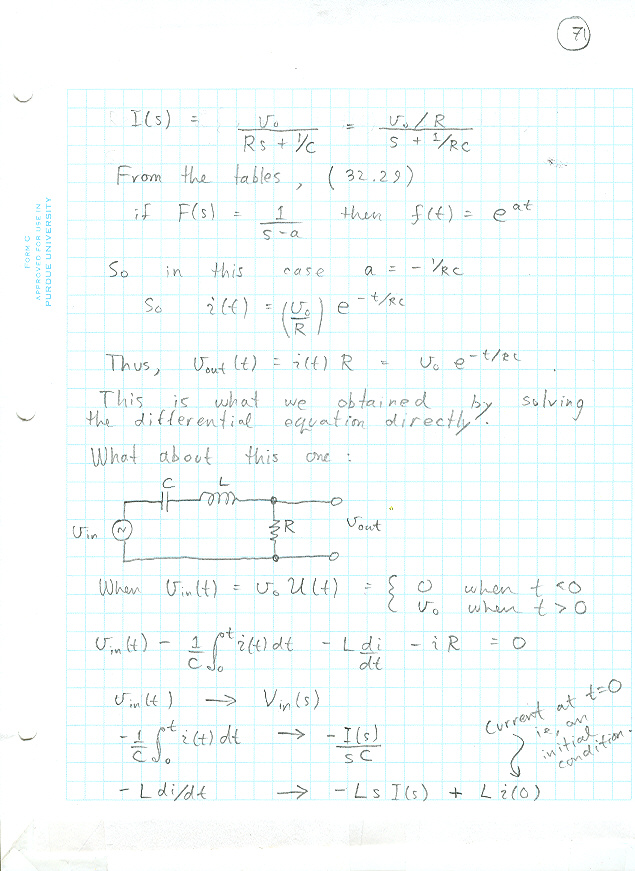 71
FORM C
APPROVED FOR USE IN
PURDUE UNIVERSITY
I(s) = v₀ / (Rs + 1/C) = (v₀/R) / (s + 1/RC)
From the tables, (32.29)
if F(s) = 1/(s-a) then f(t) = e^{at}
So in this case a = - 1/RC
So i(t) = (v₀/R) e^{-t/RC}
Thus, v_out(t) = i(t) R = v₀ e^{-t/RC}.
This is what we obtained by solving
the differential equation directly.
What about this one:
C L
v_in ~ R v_out
When v_in(t) = v₀ U(t) = { 0 when t < 0
v₀ when t > 0
v_in(t) - 1/C ∫₀^t i(t) dt - L di/dt - i R = 0
v_in(t) → V_in(s)
Current at t=0
ie, an
initial
condition.
- 1/C ∫₀^t i(t) dt → -I(s)/sC
- L di/dt → - L s I(s) + L i(0)